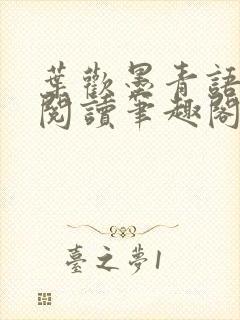 葉歡墨青語
閱讀筆趣閣
臺之夢1